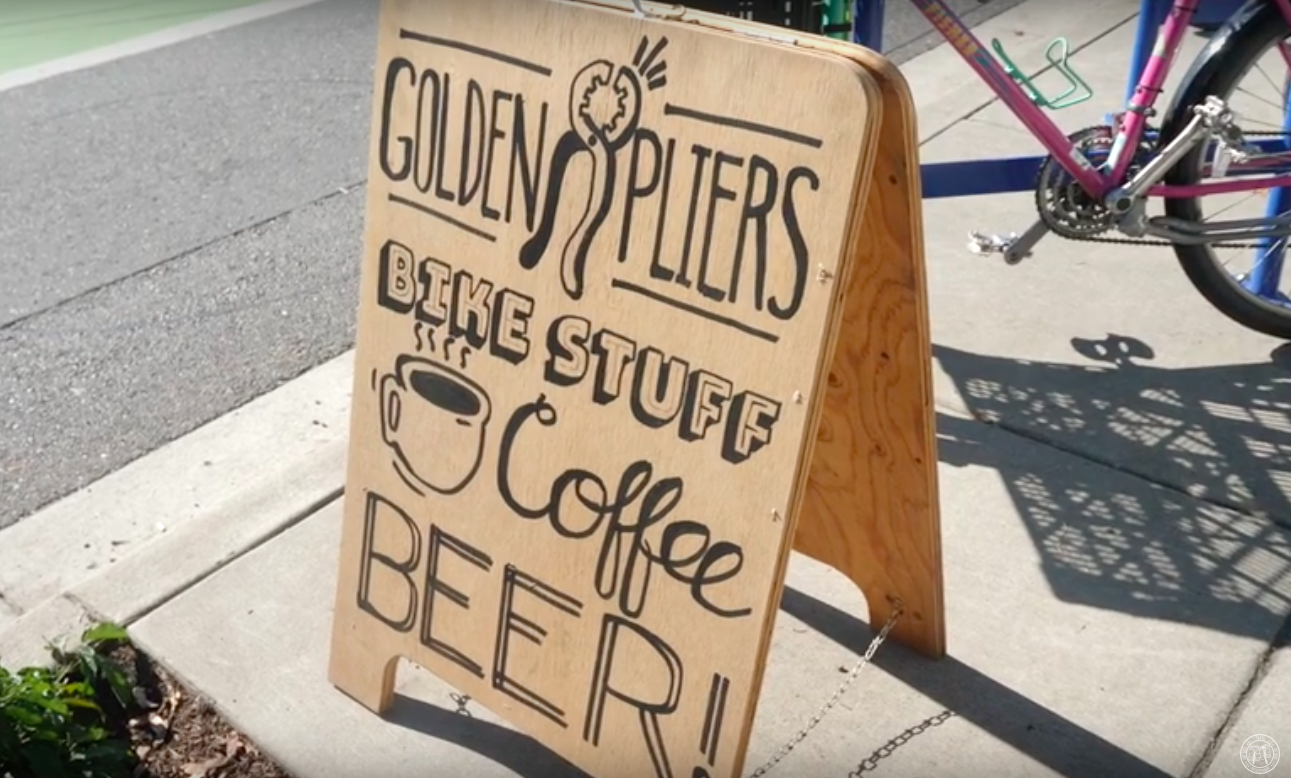 GOLDEN PLIERS
BIKE STUFF
Coffee
BEER!